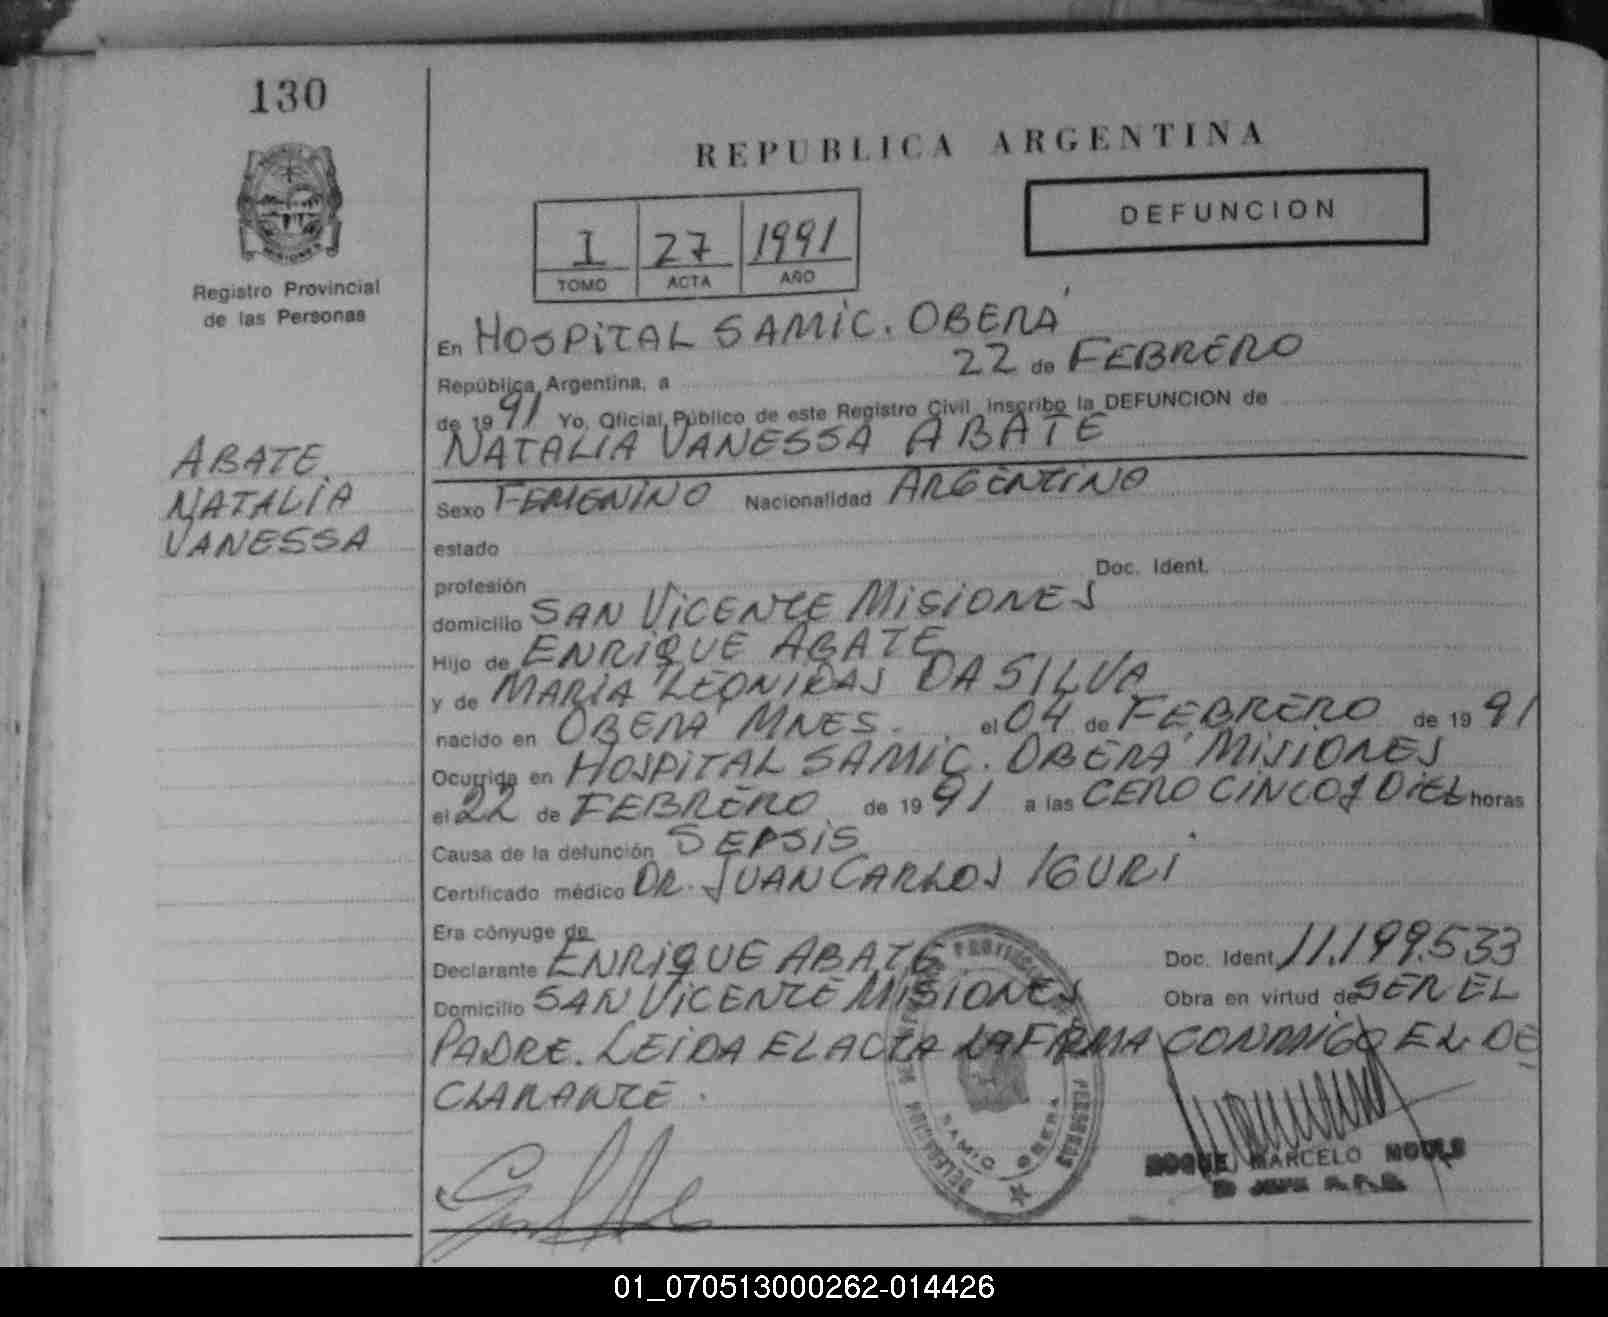 130
REPUBLICA ARGENTINA
DEFUNCION
I 27 1991
TOMO ACTA AÑO
Registro Provincial
de las Personas
En HOSPITAL SAMIC. OBERÁ
República Argentina, a 22 de FEBRERO
de 1991 Yo, Oficial Público de este Registro Civil, inscribo la DEFUNCION de
NATALIA VANESSA ABATE
ABATE
NATALIA
VANESSA
Sexo FEMENINO Nacionalidad ARGENTINO
estado
profesión Doc. Ident.
domicilio SAN VICENTE MISIONES
Hijo de ENRIQUE ABATE
y de MARIA LEONIDAS DA SILVA
nacido en OBERÁ MNES. el 04 de FEBRERO de 1991
Ocurrida en HOSPITAL SAMIC. OBERÁ MISIONES
el 22 de FEBRERO de 1991 a las CERO CINCO Y DIEZ horas
Causa de la defunción SEPSIS
Certificado médico DR. JUAN CARLOS IGURI
Era cónyuge de
Declarante ENRIQUE ABATE Doc. Ident. 11.199.533
Domicilio SAN VICENTE MISIONES Obra en virtud de SER EL
PADRE. LEIDA EL ACTA LA FIRMA CONMIGO EL DE
CLARANTE.
DELEGACION PERSONAS
SAMIC OBERA
ROQUE MARCELO
01_070513000262-014426